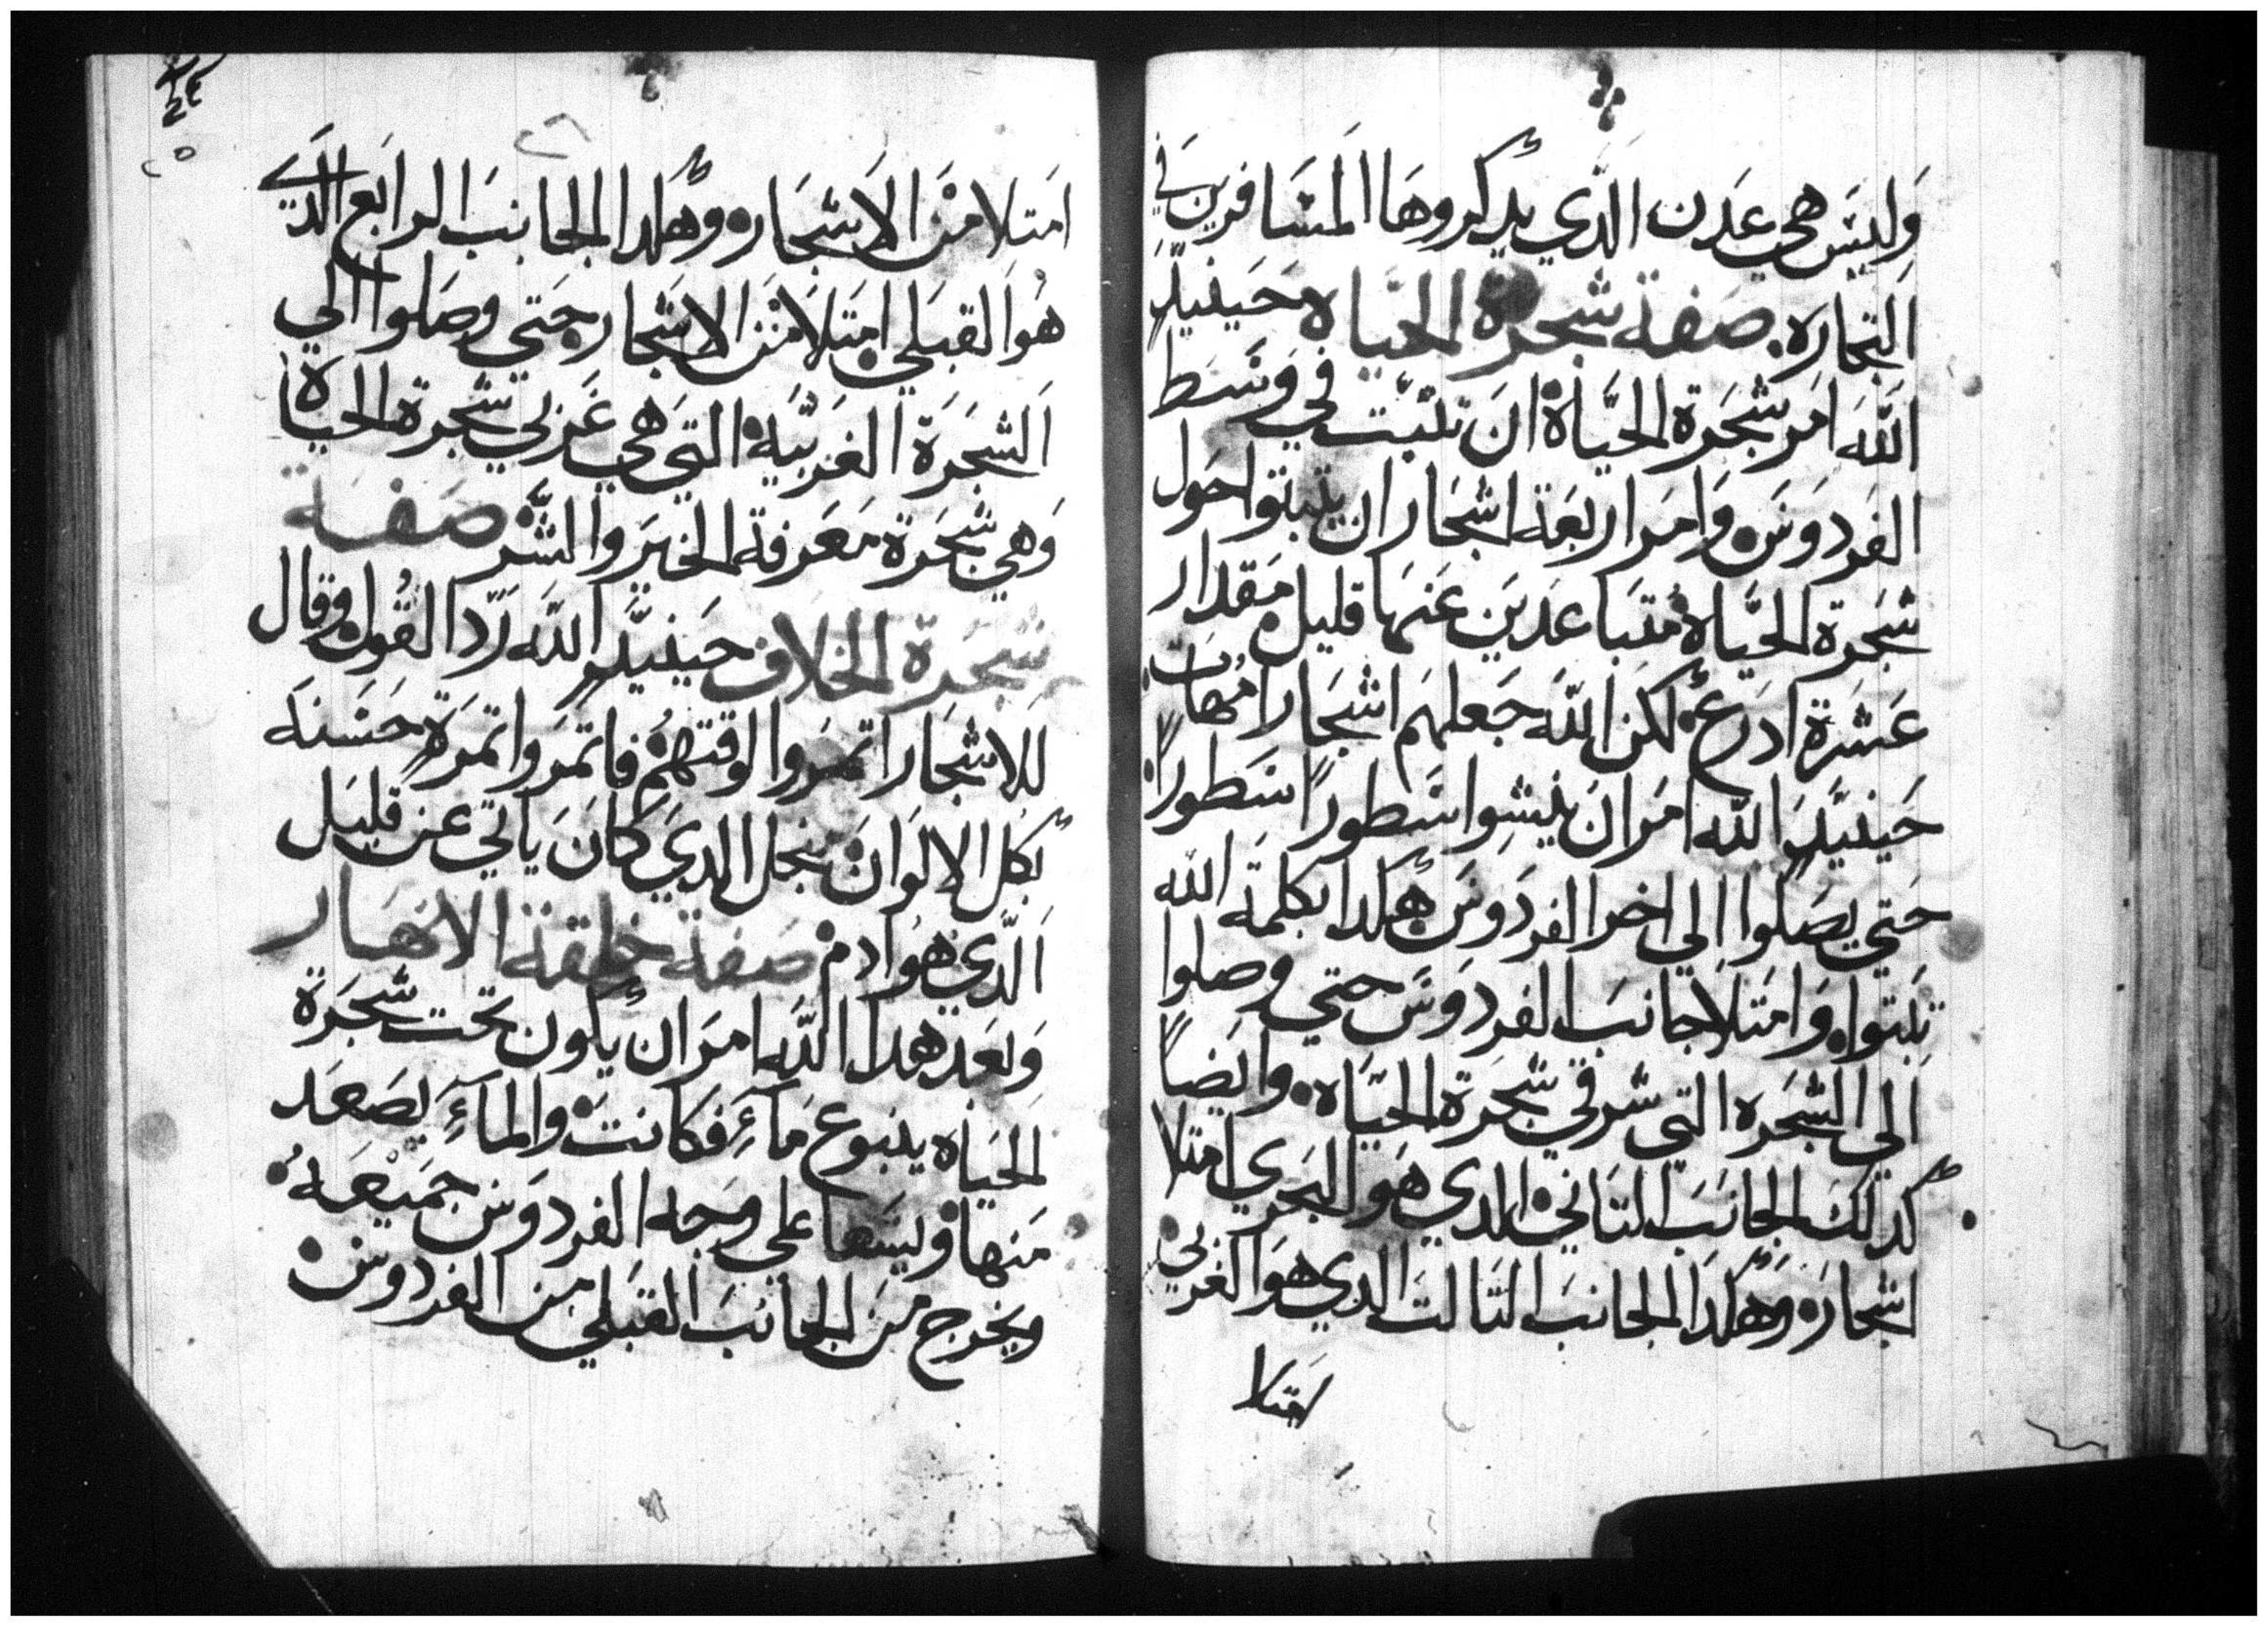 وليس هي عدن الذي يدكروها المسافرين في
التجاره. صفة شجرة الحياه حينيدٍ
الله امر شجرة الحياة ان تنبت في وسط
الفردوس وامر اربعة اشجار ان ينبتوا حول
شجرة الحياة متباعدين عنها قليل مقدار
عشرة ادرع لكن الله جعلهم اشجار امهات
حينيدٍ الله امر ان ينشوا سطوراً سطوراً
حتي يصلوا الي اخر الفردوس هكدا بكلمة الله
نبتوا وامتلا جانب الفردوس حتي وصلوا
الي الشجره التي شرقي شجرة الحياه وايضاً
كدلك الجانب التاني الدي هو البحري امتلا
اشجار وهكدا الجانب التالت الدي هو الغربي
امتلا
٢٥
امتلا من الاشجار وهكدا الجانب الرابع الدي
هو القبلي امتلا من الاشجار حتي وصلوا الي
الشجرة الغربية التي هي غربي شجرة الحياة
وهي شجرة معرفة الخير والشر صفة
شجرة الخلاف حينيدٍ الله رد القول وقال
للاشجار اتمروا لوقتهم فاتمروا تمرة حسنه
بكل الالوان نجل الدي كان ياتي عن قليل
الدي هو ادم صفة خلقة الانهار
وبعد هدا الله امر ان يكون تحت شجرة
الحياه ينبوع مآء فكانت والمآء يصعد
منها ويسقها علي وجه الفردوس جميعه
ويخرج من الجانب القبلي من الفردوس